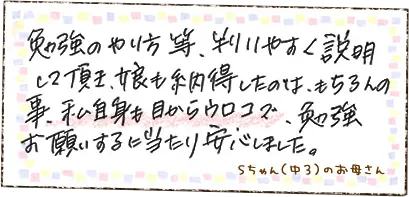 勉強のやり方等、判りやすく説明
して頂き、娘も納得したのは、もちろんの
事、私自身も目からウロコで、勉強
お願いするに当たり安心しました。
Sちゃん(中3)のお母さん